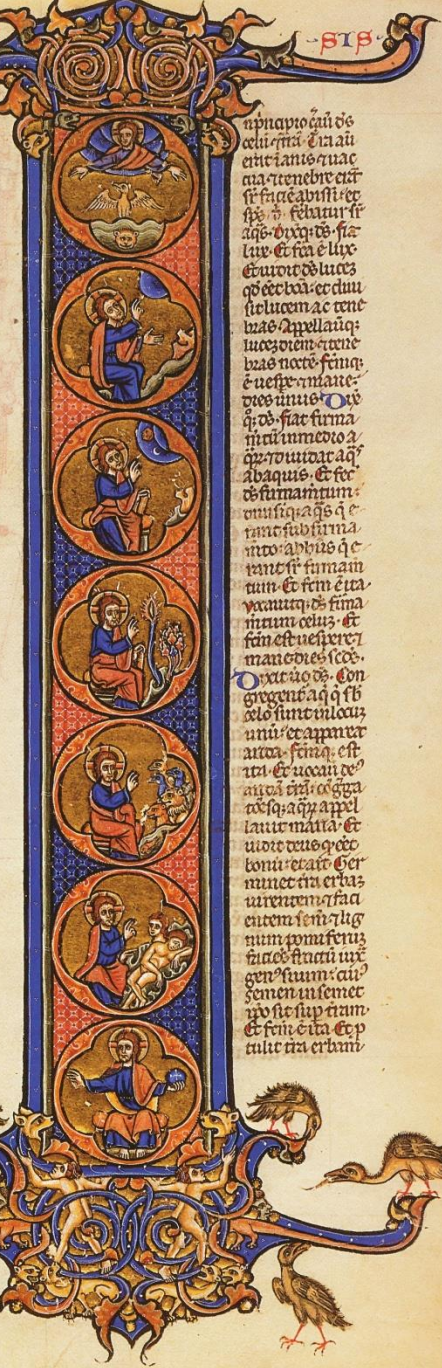 SIS
npncipio c̃au d̃s
celũ ⁊ t̃rã. T̃ra aũ
erat ĩanis ⁊ uac
cua ⁊ tenebre erãt
sr̃ faciẽ abissi ⁊ et
sp̃s d̃. ferebatur sr̃
aq̃s. Dixq; d̃s. fiat
lux. Et fcã ẽ lux.
Et uidit d̃s lucez
qd̃ eet bõa. et diui
sit lucem ac tene
bras. Appellauiq;
lucez diem ⁊ tene
bras nocte. fcmq;
ẽ uesp̃e ⁊ mane.
dies unus. Dix̃
q; d̃s. Fiat firma
mtũ in medio a
q̃ꝝ. ⁊ diuidat aq̃s
ab aquis. Et fec̃
d̃s firmamtum.
diuisiq; aq̃s q̃ e
rant sub firma
mto. ab hiis q̃ e
rant sr̃ firmam
tum. Et fcm ẽ ita.
Vocauitq; d̃s firma
mtum celuz. Et
fcm est uespere ⁊
mane dies scds.
Dixit uo d̃s. Con
gregent̃ aq̃ q̃ sb
celo sunt in locuz
unũ. et appareat
arida. fcmq; est
ita. Et uocau de
aridã t̃rã. cõg̃ga
tõesq; aq̃ꝝ appel
lauit maria. Et
uidit deus q eet
bonũ. et ait. Ger
minet t̃ra erbaz
uirentem ⁊ faci
entem sem̃ ⁊ lig
num pomiferuz
faciẽs fructũ iux̃
gen⁹ suum. cui⁹
semen in semet
ipo sit sup̃ terram.
Et fcm ẽ ita. Et p
tulit t̃ra erbam